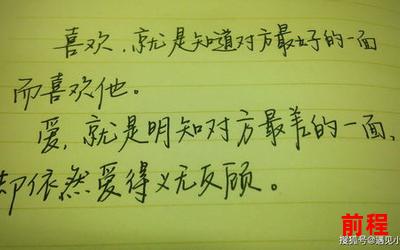 喜欢,就是知道对方最好的一面
而喜欢他。
爱,就是明知对方最差的一面、
却依然爱得义无反顾。
前程
搜狐号@遇见小